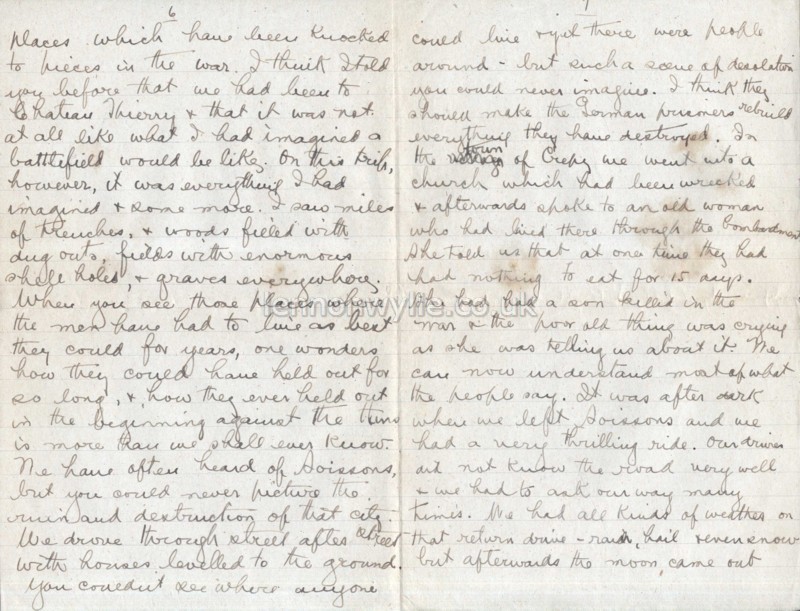 6
places which have been knocked
to pieces in the war. I think I told
you before that we had been to
Chateau Thierry & that it was not
at all like what I had imagined a
battlefield would be like. On this trip,
however, it was everything I had
imagined & some more. I saw miles
of trenches, & woods filled with
dug outs, fields with enormous
shell holes, & graves everywhere.
When you see those places where
the men have had to live as best
they could for years, one wonders
how they could have held out for
so long, & how they ever held out
in the beginning against the Huns
is more than we shall ever know.
We have often heard of Soissons,
but you could never picture the
ruin and destruction of that city.
We drove through street after street
with houses levelled to the ground.
You couldn't see where anyone
7
could live & yet there were people
around - but such a scene of desolation
you could never imagine. I think they
should make the German prisoners rebuild
everything they have destroyed. In
the town of Crepy we went into a
church which had been wrecked
& afterwards spoke to an old woman
who had lived there through the bombardment
She told us that at one time they had
had nothing to eat for 15 days.
She had had a son killed in the
war & the poor old thing was crying
as she was telling us about it. We
can now understand most of what
the people say. It was after dark
when we left Soissons and we
had a very thrilling ride. Our driver
did not know the road very well
& we had to ask our way many
times. We had all kinds of weather on
that return drive - rain, hail & even snow
but afterwards the moon came out
lennonwylie.co.uk